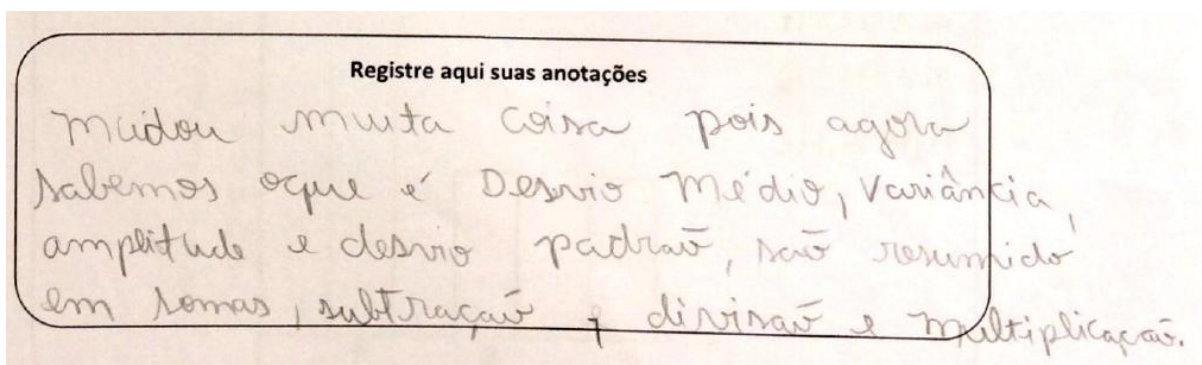 Registre aqui suas anotações
Mudou muita coisa pois agora
sabemos oque é Desvio Médio, Variância,
amplitude e desvio padrão, são resumido
em somas, subtração, divisão e multiplicação.